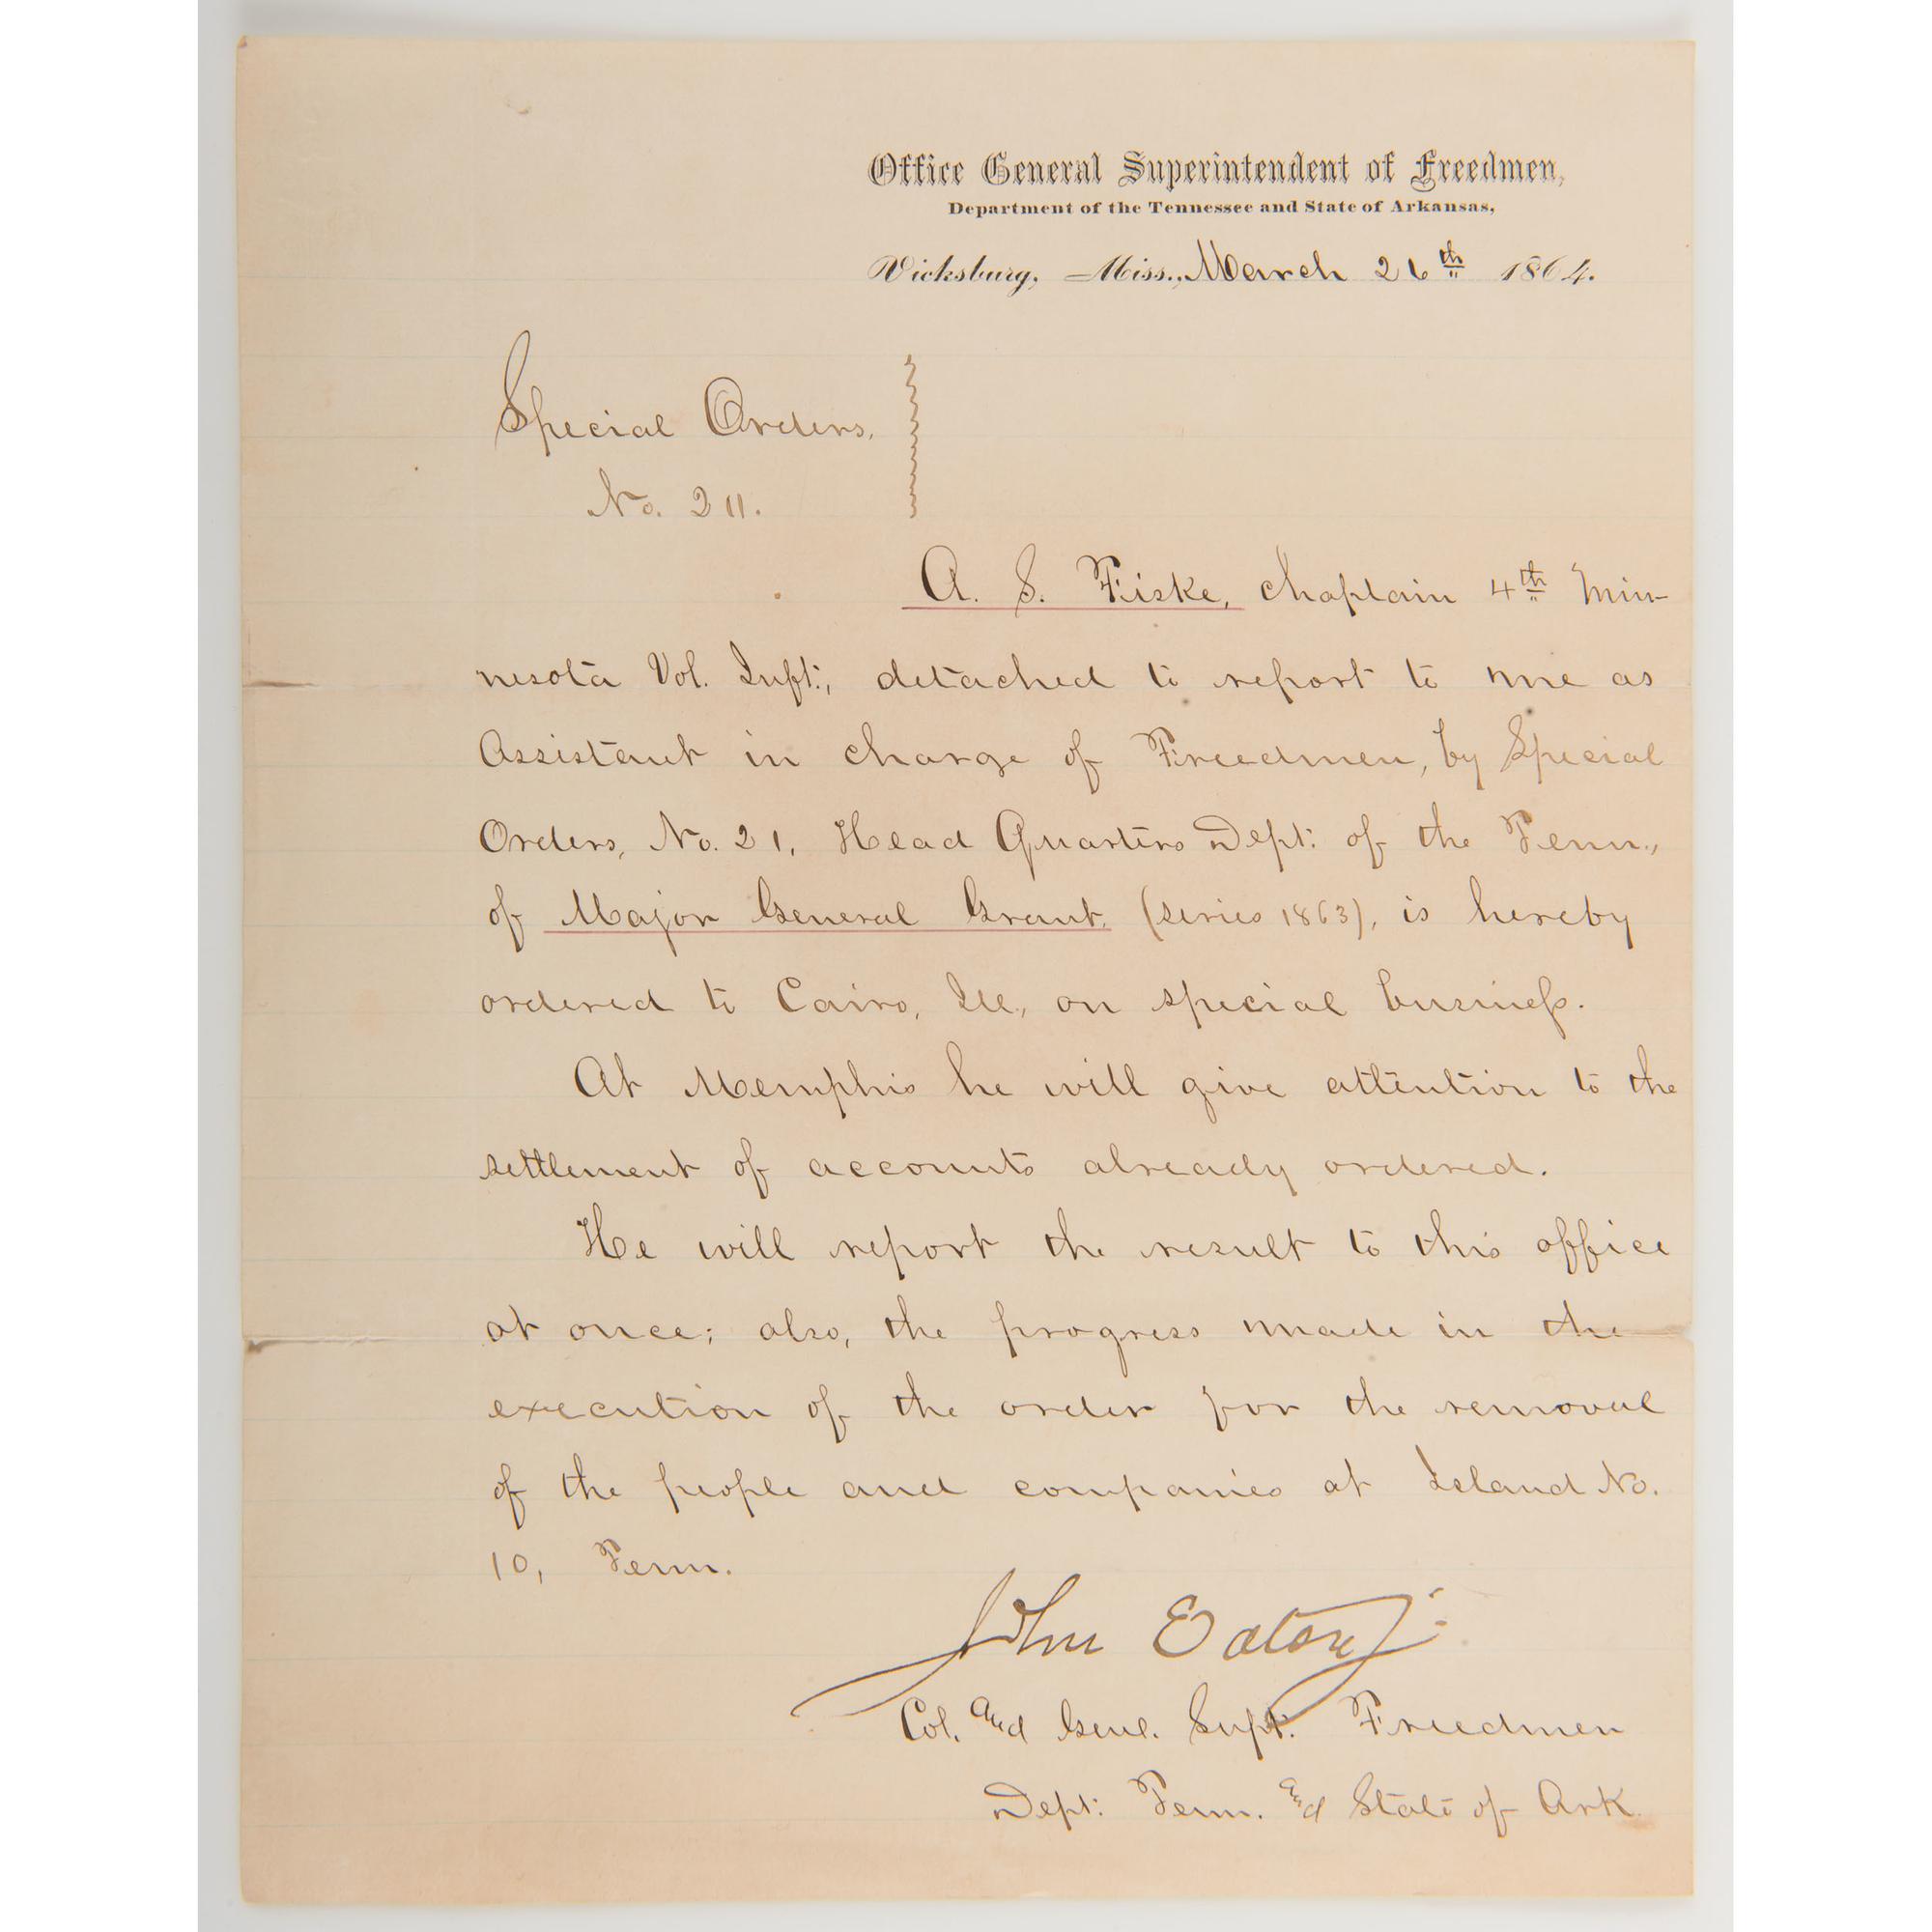 Office General Superintendent of Freedmen,
Department of the Tennessee and State of Arkansas,
Vicksburg, Miss., March 26th 1864.
Special Orders,
No. 211.
A. S. Fiske, Chaplain 4th Min-
nesota Vol. Inft:, detached to report to me as
Assistant in charge of Freedmen, by Special
Orders, No. 21, Head Quarters Dept: of the Tenn.,
of Major General Grant, (series 1863), is hereby
ordered to Cairo, Ill., on special business.
At Memphis he will give attention to the
settlement of accounts already ordered.
He will report the result to this office
at once; also, the progress made in the
execution of the order for the removal
of the people and companies at Island No.
10, Tenn.
John Eaton Jr
Col. and Genl. Supt. Freedmen
Dept: Tenn. and State of Ark.